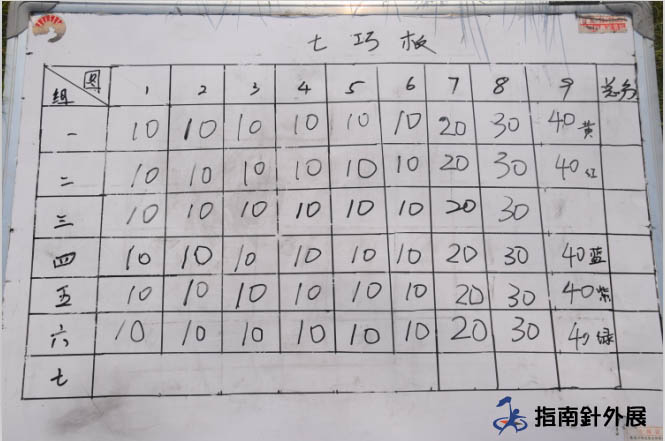 七巧板
组 图 1 2 3 4 5 6 7 8 9 总分
一 10 10 10 10 10 10 20 30 40黄
二 10 10 10 10 10 10 20 30 40红
三 10 10 10 10 10 10 20 30
四 10 10 10 10 10 10 20 30 40蓝
五 10 10 10 10 10 10 20 30 40紫
六 10 10 10 10 10 10 20 30 40绿
七
指南針外展